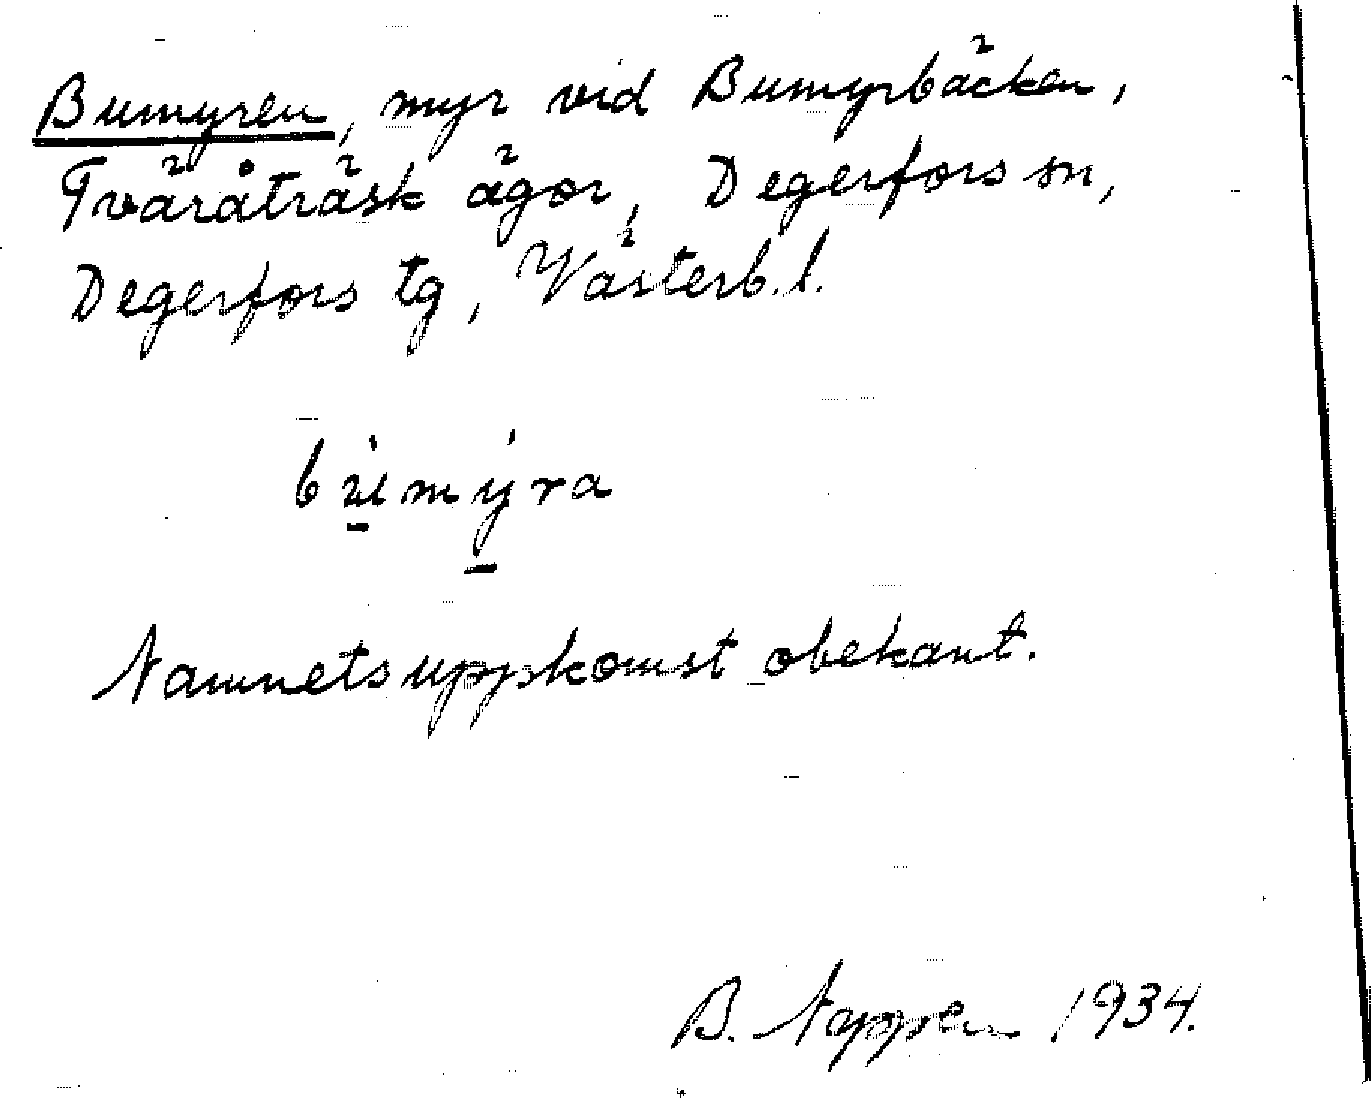 Bumyren, myr vid Bumyrbäcken,
Tväråträsk ägor, Degerfors sn,
Degerfors tg, Västerb. l.
bu̱̍my̱̍ra
Namnets uppkomst obekant.
B. 1934.